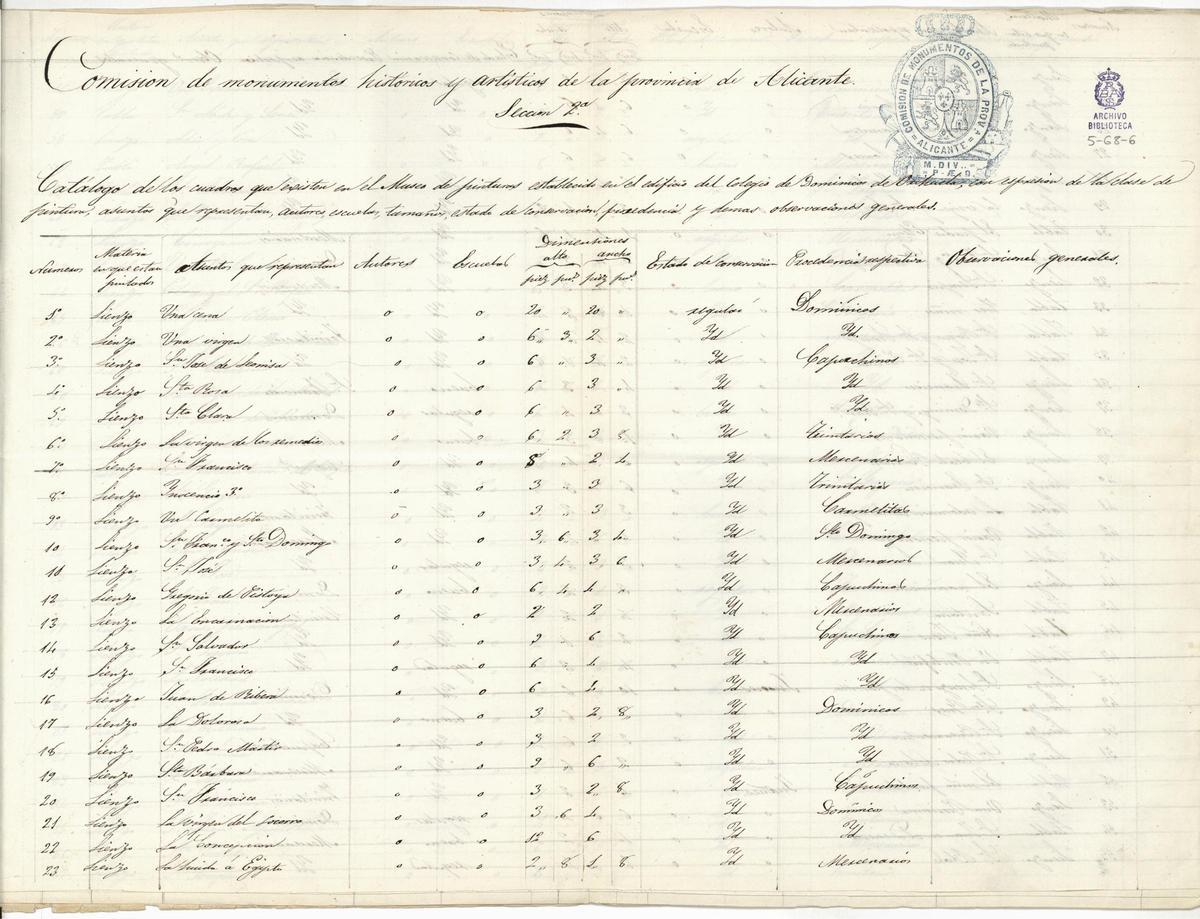 Comision de monumentos históricos y artísticos de la provincia de Alicante.
Seccion 2ª
COMISION DE MONUMENTOS DE LA PROVA
= ALICANTE =
M. DIV..-
-P-Æ-D.
ARCHIVO
BIBLIOTECA
5-68-6
Catálogo de los cuadros que existen en el Museo de pinturas establecido en el edificio del colegio de Dominicos de Orihuela con espresion de la clase de
pintura, asuntos que representan, autores escuelas, tamaño, estado de conservacion, procedencia y demas observaciones generales.
Numeros Materia en que estan pintados Asuntos que representan Autores Escuelas Dimentiones alto piez pul.s ancho piez pul.s Estado de conservacion Procedencia respectiva Observaciones generales.
1º Lienzo Una cena o o 20 " 20 " regular Dominicos
2º Lienzo Una virgen o o 6 " 3 " 2 " Yd Yd.
3º Lienzo Sn. Jose de o o 6 " 3 " Yd Capuchinos
4º Lienzo Sta Rosa o o 6 3 4 Yd Yd
5º Lienzo Sta Clara o o 6 " 3 Yd Yd.
6º Lienzo La virgen de los remedios o o 6 " 2 " 3 " 8 " Yd Trinitarios
7º Lienzo Sn. Francisco o o 8 " 2 " 4 " Yd Mercenarios
8º Lienzo Inocencio 3º o o 3 " 3 Yd Trinitarios
9º Lienzo Un Carmelita o o 3 " 3 Yd Carmelitas
10 Lienzo Sn. Franco y Sto Domingo o o 3 " 6 " 3 " 4 " Yd Sto Domingo
11 Lienzo Sn. José o o 3 " 4 " 3 " 6 " Yd Mercenarios
12 Lienzo Gregorio de Pistoya o o 6 " 4 " 4 " Yd Capuchinos
13 Lienzo La Encarnacion o o 2 " 2 Yd Mercenarios
14 Lienzo Sn. Salvador o o 9 " 6 Yd Capuchinos
15 Lienzo Sn. Francisco o o 6 " 4 Yd Yd
16 Lienzo Juan de Ribera o o 6 4 Yd Yd
17 Lienzo La Dolorosa o o 3 2 " 8 " Yd Dominicos
18 Lienzo Sn. Pedro Mártir o o 3 2 Yd Yd
19 Lienzo Sta Bárbara o o 9 " 6 " Yd Yd
20 Lienzo Sn. Francisco o o 3 2 " 8 " Yd Capuchinos
21 Lienzo La virgen del socorro o o 3 " 6 " 4 " Yd Dominicos
22 Lienzo La Concepcion o o 12 6 Yd Yd
23 Lienzo La huida á Egipto o o 2 " 8 " 1 " 8 " Yd Mercenarios